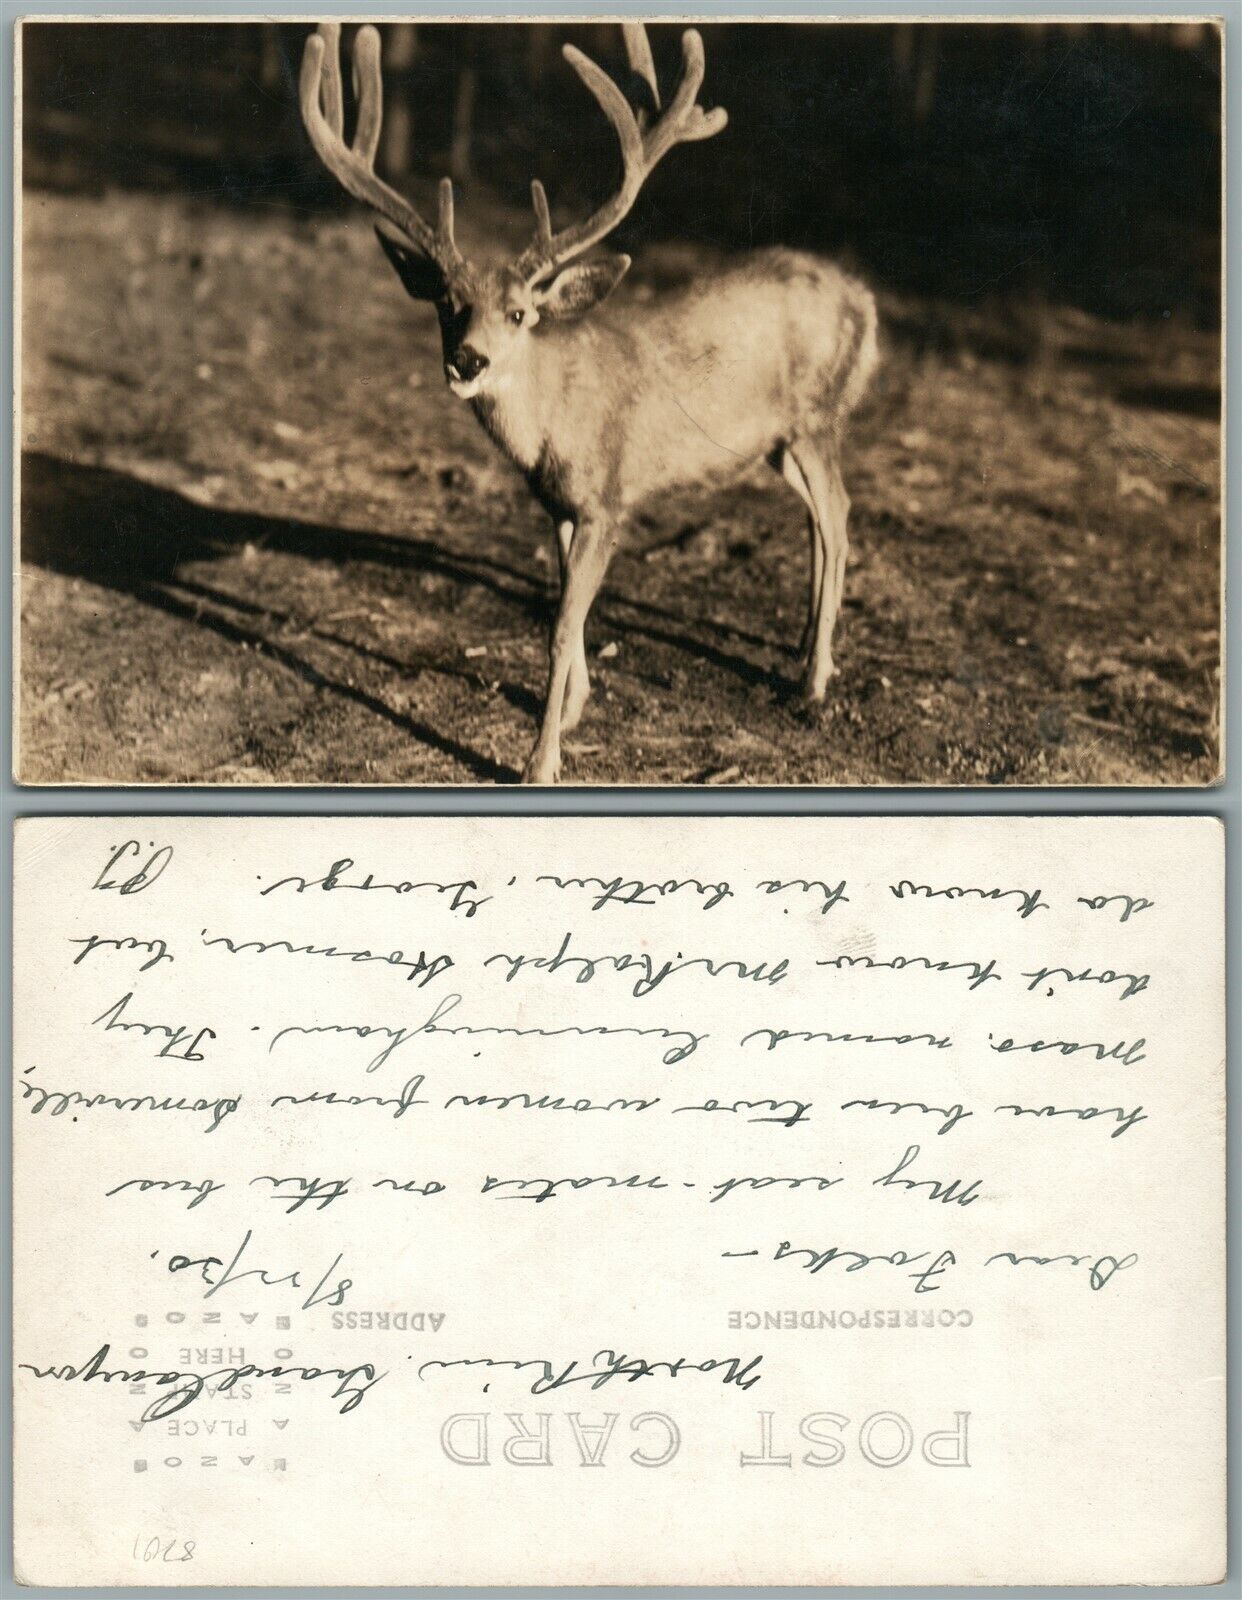 8791
POST CARD
AZO
PLACE
STAMP
HERE
AZO
CORRESPONDENCE
ADDRESS
North Rim. Grand Canyon
8/22/30.
Dear Folks–
My seat-mates on the bus
have been two women from Somerville,
Mass. named Cunningham. They
don't know Mr. Ralph Hosmer, but
do know his brother, George.